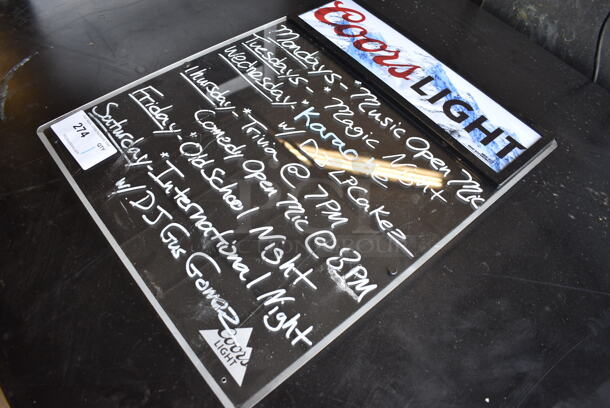 Coors LIGHT
Mondays - Music Open Mic
Tuesdays - *Magic Night
Wednesday - *Karaoke
w/ DJ LPCakez
Thursday - *Trivia @ 7PM
Comedy Open Mic @ 8PM
Friday - *Old School Night
Saturday - *International Night
w/ DJ Gus Gomez
Coors
LIGHT
274
QTY